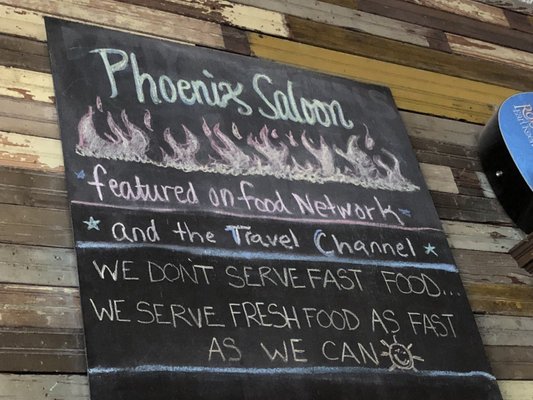 Phoenix Saloon
featured on food Network
and the Travel Channel
WE DON'T SERVE FAST FOOD...
WE SERVE FRESH FOOD AS FAST
AS WE CAN